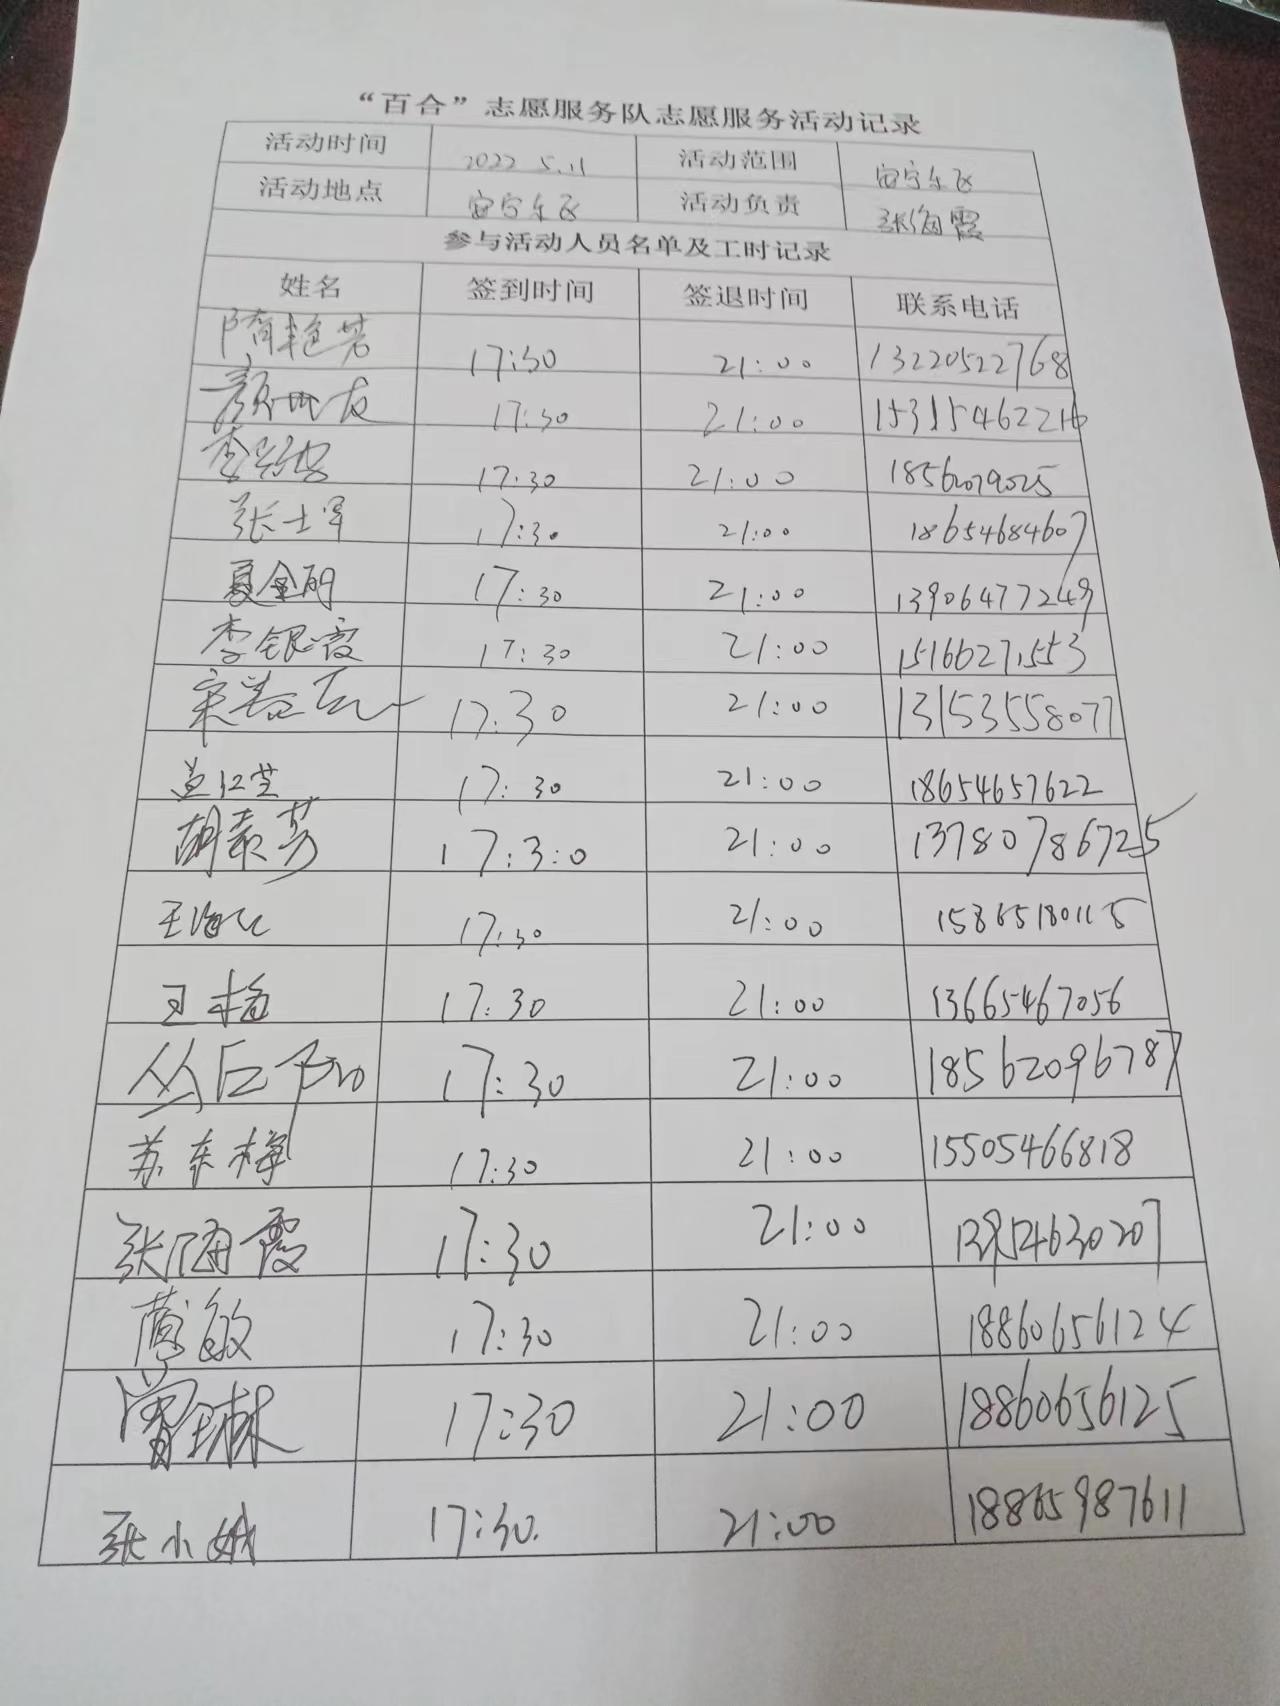 “百合”志愿服务队志愿服务活动记录
活动时间 2022 5.11 活动范围 安宁东区
活动地点 安宁东区 活动负责 张海霞
参与活动人员名单及工时记录
姓名 签到时间 签退时间 联系电话
隋艳芳 17:30 21:00 13220522768
颜世友 17:30 21:00 15315462216
17:30 21:00 18562079025
张士军 17:30 21:00 18654684607
夏金明 17:30 21:00 13906477249
李银霞 17:30 21:00 15166271553
宋 17:30 21:00 13153558077
17:30 21:00 18654657622
胡素芳 17:3:0 21:00 13780786725
王海 17:30 21:00 15865180115
王梅 17:30 21:00 13665467056
丛 17:30 21:00 18562096787
苏东梅 17:30 21:00 15505466818
张海霞 17:30 21:00 13954630207
蔺敏 17:30 21:00 18860656124
曾琳 17:30 21:00 18860656125
张小娥 17:30. 21:00 18865987611